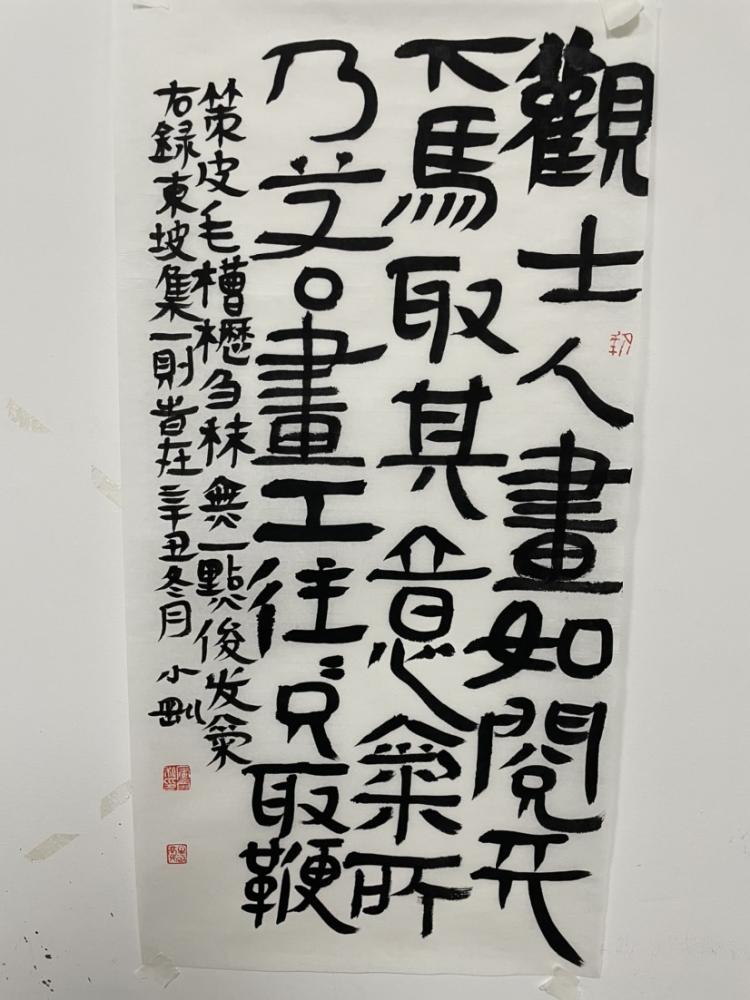 觀士人畫如閱天
下馬取其意氣所
乃若畫工往〻只取鞭
策皮毛槽櫪刍秣無一點俊发氣
右録東坡集一則旹在辛丑冬月 小剛